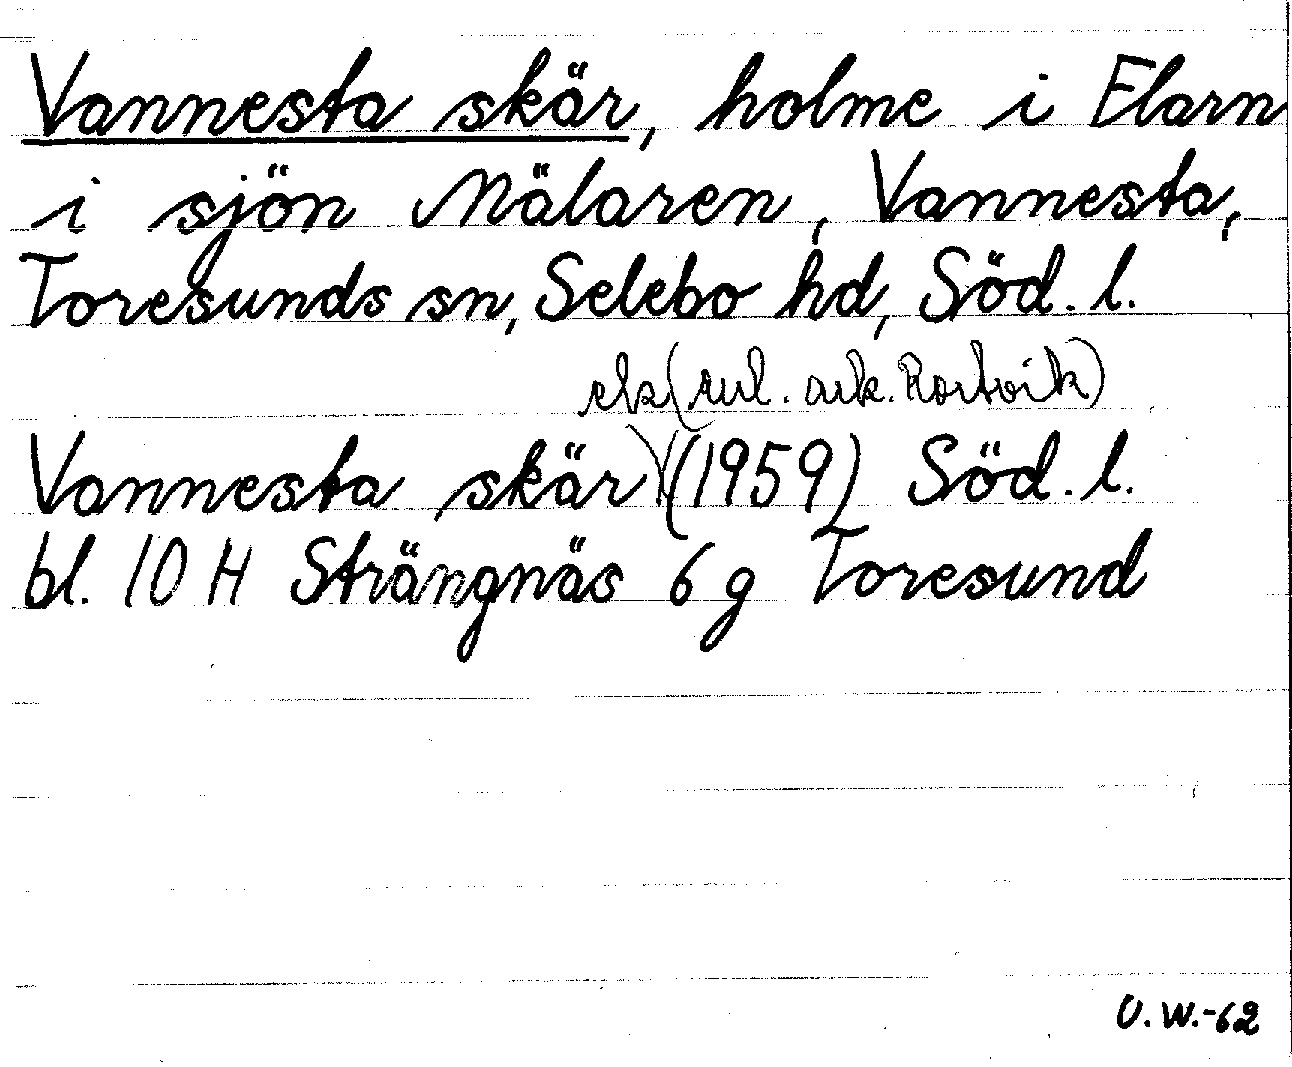 Vannesta skär, holme i Flarn
i sjön Mälaren, Vannesta,
Toresunds sn, Selebo hd, Söd. l.
ek (enl. ark. Rostvik)
Vannesta skär (1959) Söd. l.
bl. 10 H Strängnäs 6 g Toresund
U.W.-62